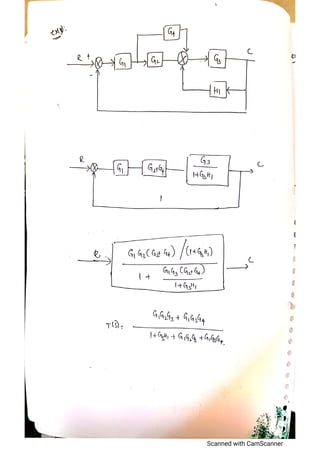 R + G1 G2 G4 G3 C
-
H1
R G1 G2+G4 G3 C
1+G3H1
1
R G1G3(G2+G4)/(1+G3H1) C
1 + G1G3(G2+G4)
1+G3H1
T(S) = G1G2G3 + G1G3G4
1+G3H1 + G1G2G3 + G1G3G4
Scanned with CamScanner